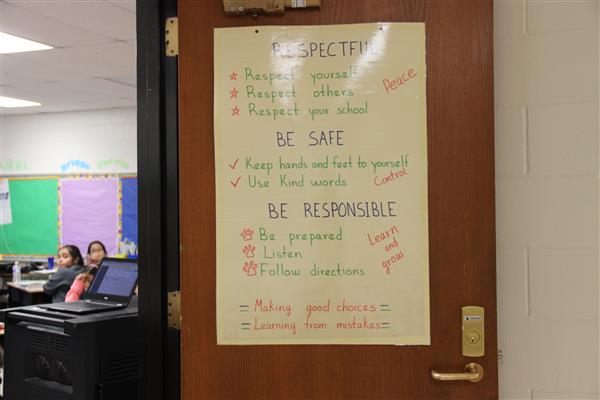 RESPECTFUL
Respect yourself
Respect others
Respect your school
Peace
BE SAFE
Keep hands and feet to yourself
Use Kind words
Control
BE RESPONSIBLE
Be prepared
Listen
Follow directions
Learn
and
grow
= Making good choices =
= Learning from mistakes =